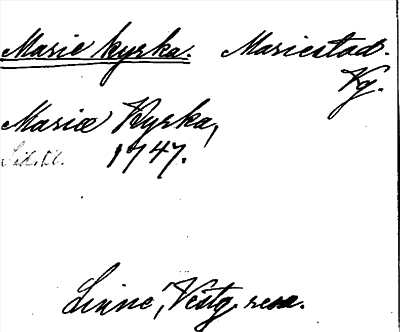 Marie kyrka. Mariestad.
Vg.
Mariæ Kyrka,
1747.
Linné, Västg. resa.